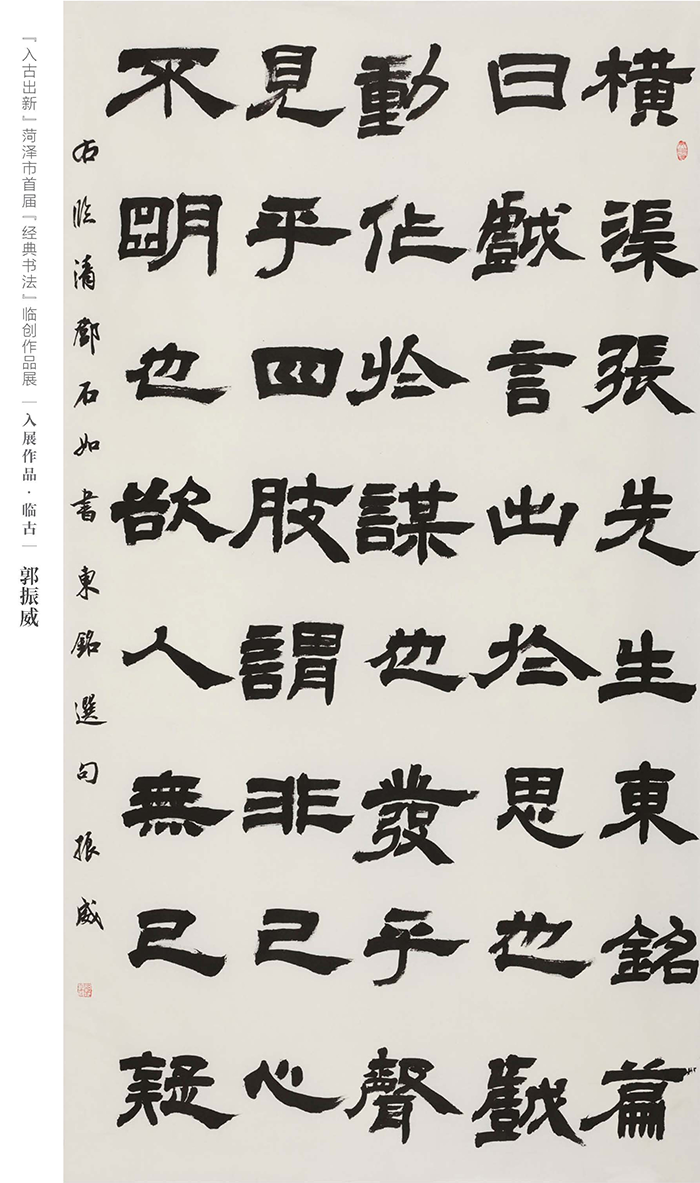 橫渠張先生東銘篇
曰戲言出於思也戲
動作於謀也發乎聲
見乎四肢謂非己心
不朙也欲人無己疑
右臨清鄧石如書東銘選句 振威
『入古出新』菏泽市首届『经典书法』临创作品展｜入展作品·临古｜郭振威